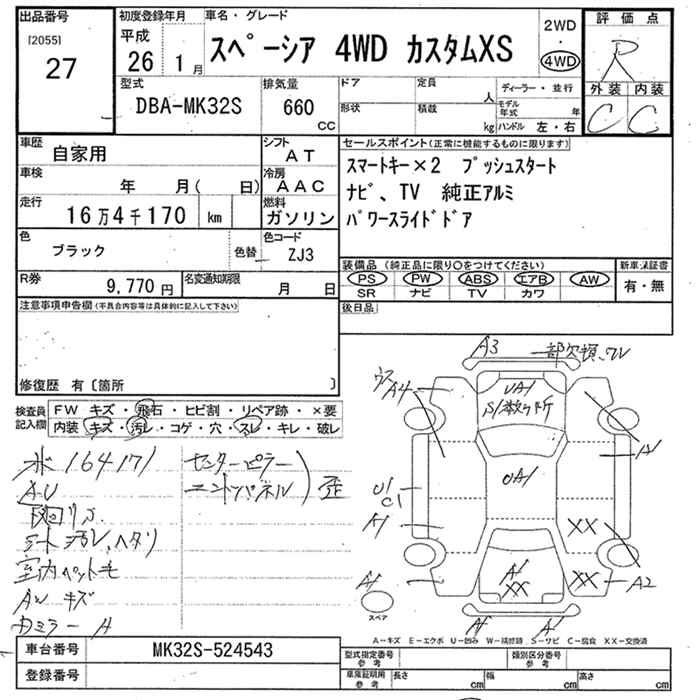 出品番号
[2055]
27
初度登録年月
平成
26 1月
車名・グレード
スペーシア 4WD カスタムXS
2WD
・
4WD
評価点
R
外装 内装
C C
型式
DBA-MK32S
排気量
660
CC
ドア
形状
定員
人
積載
kg
ディーラー・並行
モデル年式 年
ハンドル 左・右
車歴
自家用
シフト
AT
車検
年 月( 日)
冷房
AAC
走行
16万4千170 km
燃料
ガソリン
色
ブラック
色替
色コード
ZJ3
R券
9,770円
名変通知期限
月 日
セールスポイント(正常に機能するものに限ります)
スマートキー×2 プッシュスタート
ナビ、TV 純正アルミ
パワースライドドア
装備品(純正品に限り○をつけてください)
PS PW ABS エアB AW
SR ナビ TV カワ
新車保証書
有・無
後日品
注意事項申告欄(不具合内容等は具体的に記入して下さい)
修復歴 有〔箇所 〕
検査員記入欄
FW キズ・飛石・ヒビ割・リペア跡・×要
内装 キズ・汚レ・コゲ・穴・スレ・キレ・破レ
164171
センターピラー
エンドパネル
歪
シート汚レ、ヘタリ
室内ペット毛
AW キズ
カミラー A
A3
一部欠損、ワレ
A4
UA1
S1数ヶ所
A1
UA1
U1
C1
A1
XX
A1
XX
XX
A2
A1
スペア
A1
A1
A-キズ E-エクボ U-凹み W-補修跡 S-サビ C-腐食 XX-交換済
車台番号
MK32S-524543
登録番号
型式指定番号
参考
類別区分番号
参考
車庫証明用
参考
長さ cm
幅 cm
高さ cm